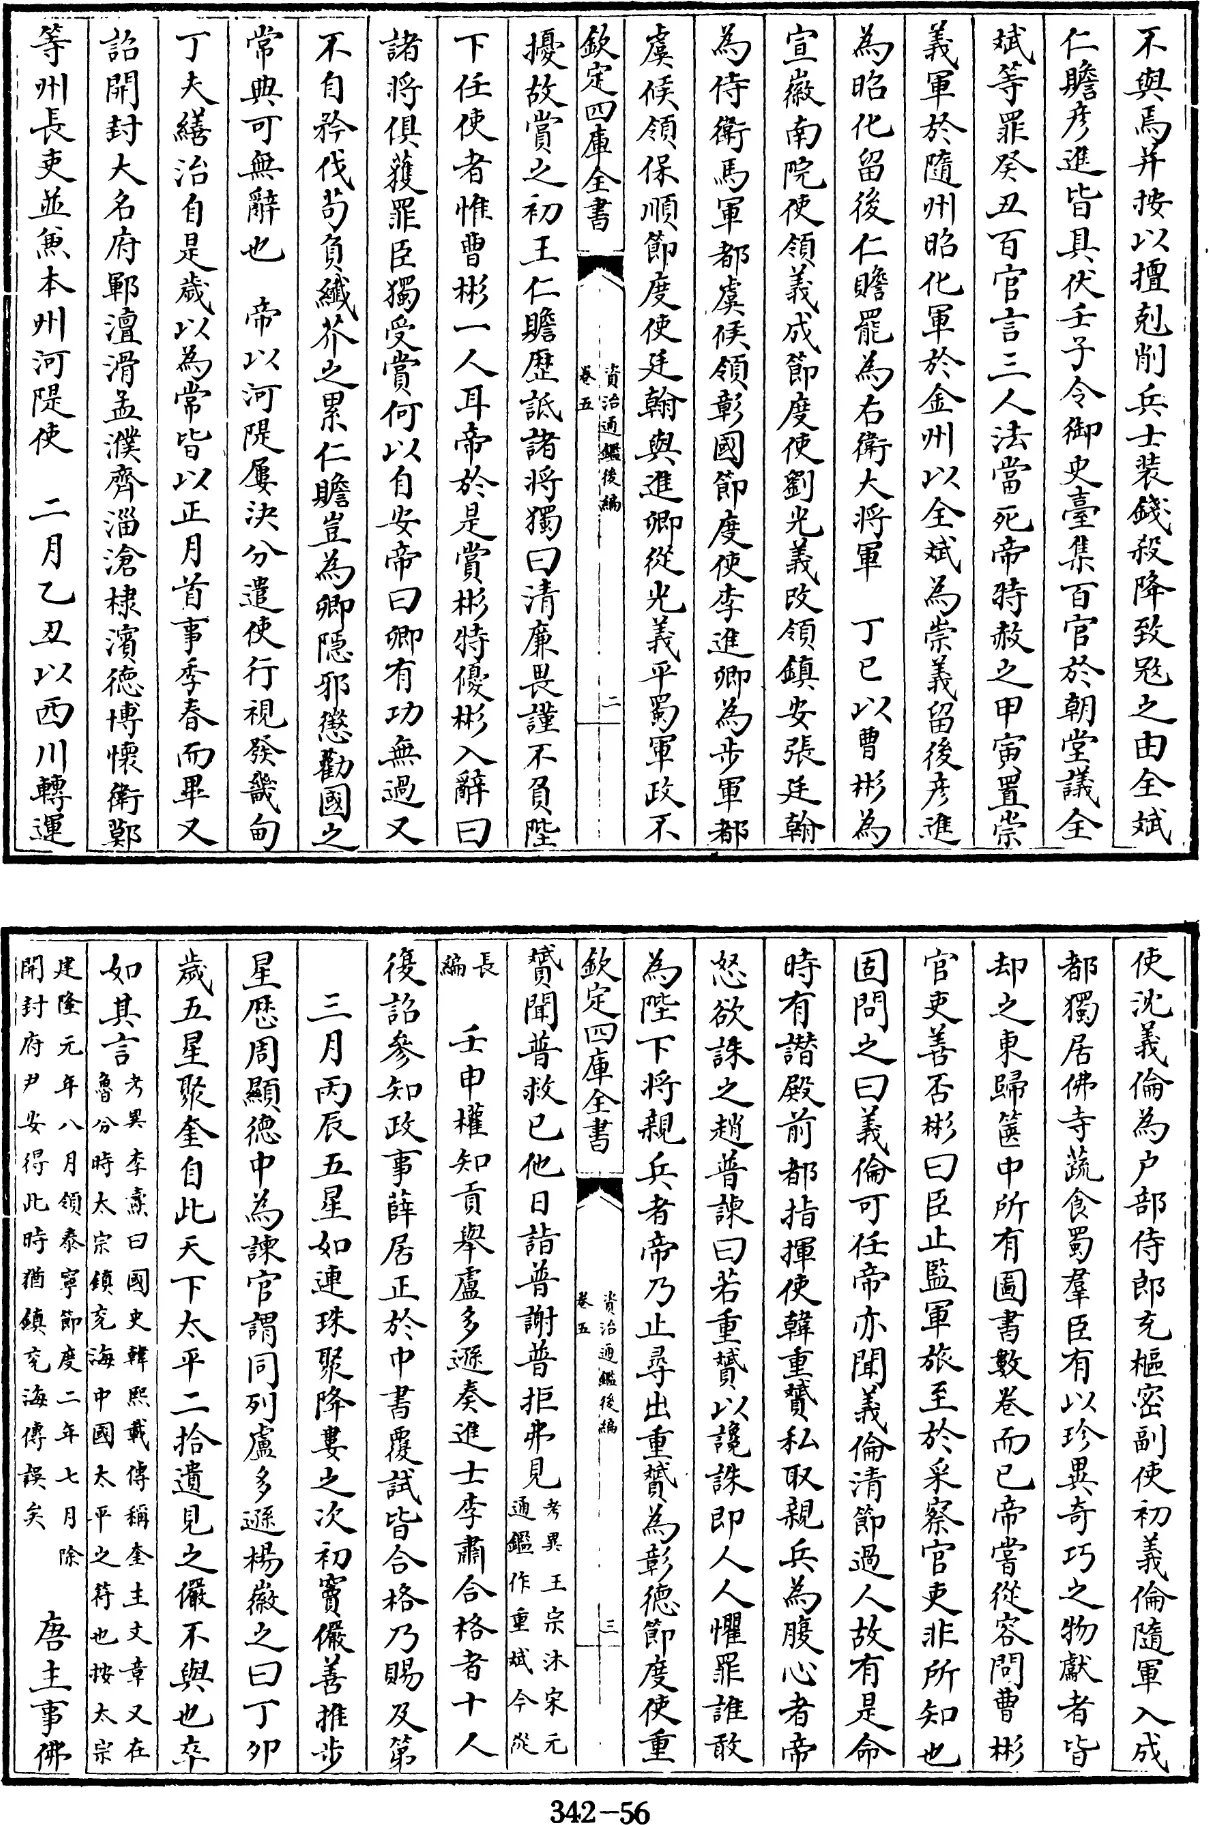 不與焉并按以擅剋削兵士裝錢殺降致冦之由全斌
仁贍彥進皆具伏壬子令御史臺集百官於朝堂議全
斌等罪癸丑百官言三人法當死帝特赦之甲寅置崇
義軍於隨州昭化軍於金州以全斌為崇義留後彥進
為昭化留後仁贍罷為右衛大將軍　丁巳以曹彬為
宣徽南院使領義成節度使劉光義改領鎮安張廷翰
為侍衛馬軍都虞候領彰國節度使李進卿為步軍都
虞候領保順節度使廷翰與進卿從光義平蜀軍政不
欽定四庫全書
資治通鑑後編
卷五
二
擾故賞之初王仁贍歷詆諸將獨曰清廉畏謹不負陛
下任使者惟曹彬一人耳帝於是賞彬特優彬入辭曰
諸將俱獲罪臣獨受賞何以自安帝曰卿有功無過又
不自矜伐苟負纖芥之累仁贍豈為卿隱邪懲勸國之
常典可無辭也　帝以河隄屢決分遣使行視發畿甸
丁夫繕治自是歲以為常皆以正月首事季春而畢又
詔開封大名府鄆澶滑孟濮齊淄滄棣濱德博懷衛鄭
等州長吏並兼本州河隄使　二月乙丑以西川轉運
使沈義倫為户部侍郎充樞密副使初義倫隨軍入成
都獨居佛寺蔬食蜀羣臣有以珍異奇巧之物獻者皆
却之東歸篋中所有圖書數卷而已帝嘗從容問曹彬
官吏善否彬曰臣止監軍旅至於采察官吏非所知也
固問之曰義倫可任帝亦聞義倫清節過人故有是命
時有譖殿前都指揮使韓重贇私取親兵為腹心者帝
怒欲誅之趙普諫曰若重贇以讒誅即人人懼罪誰敢
為陛下將親兵者帝乃止尋出重贇為彰德節度使重
欽定四庫全書
資治通鑑後編
卷五
三
贇聞普救已他日詣普謝普拒弗見考異王宗沐宋元
通鑑作重斌今從
長
編　壬申權知貢舉盧多遜奏進士李肅合格者十人
復詔參知政事薛居正於中書覆試皆合格乃賜及第
三月丙辰五星如連珠聚降婁之次初竇儼善推步
星歷周顯德中為諫官謂同列盧多遜楊徽之曰丁卯
歲五星聚奎自此天下太平二拾遺見之儼不與也卒
如其言考異李燾曰國史韓熙載傳稱奎主文章又在
魯分時太宗鎮兖海中國太平之符也按太宗
建隆元年八月領泰寧節度二年七月除
開封府尹安得此時猶鎮兖海傳誤矣　唐主事佛
342-56